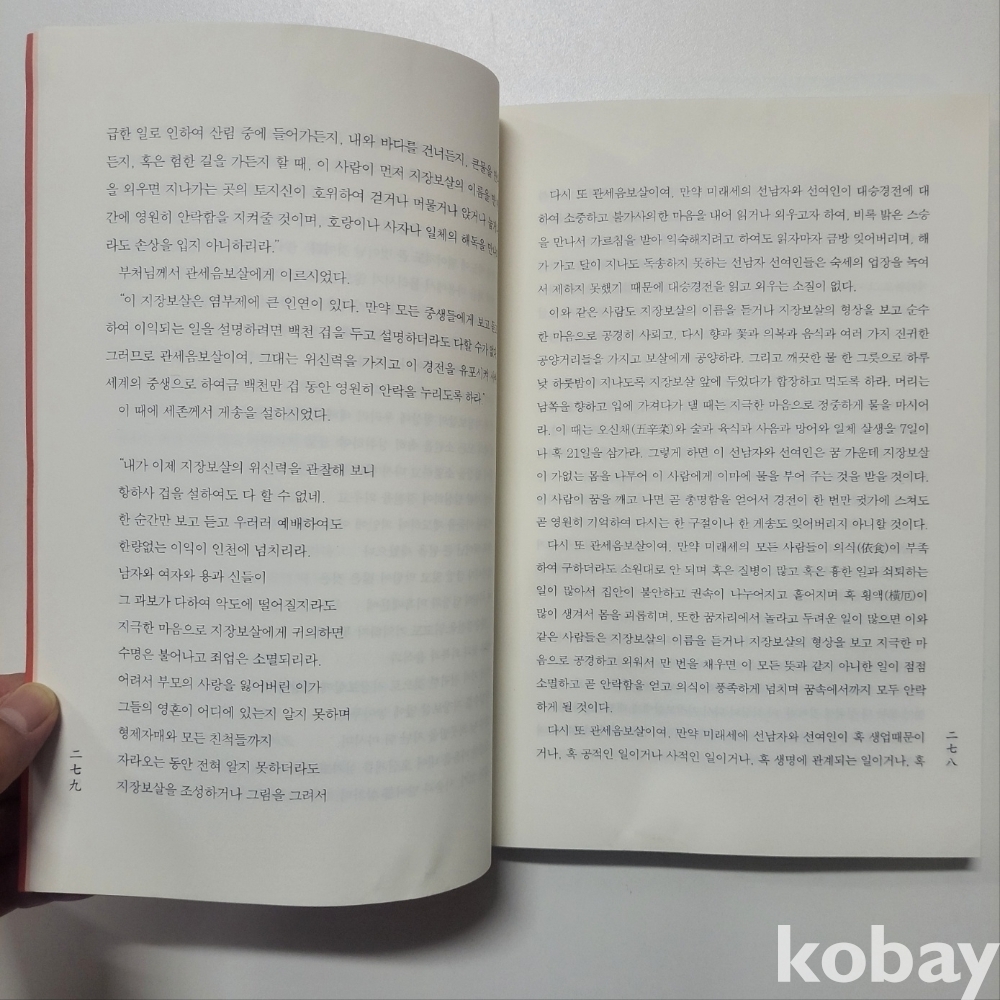 다시 또 관세음보살이여, 만약 미래세의 선남자와 선여인이 대승경전에 대
하여 소중하고 불가사의한 마음을 내어 읽거나 외우고자 하여, 비록 밝은 스승
을 만나서 가르침을 받아 익숙해지려고 하여도 읽자마자 금방 잊어버리며, 해
가 가고 달이 지나도 독송하지 못하는 선남자 선여인들은 숙세의 업장을 녹여
서 제하지 못했기 때문에 대승경전을 읽고 외우는 소질이 없다.
이와 같은 사람도 지장보살의 이름을 듣거나 지장보살의 형상을 보고 순수
한 마음으로 공경히 사뢰고, 다시 향과 꽃과 의복과 음식과 여러 가지 진귀한
공양거리들을 가지고 보살에게 공양하라. 그리고 깨끗한 물 한 그릇으로 하루
낮 하룻밤이 지나도록 지장보살 앞에 두었다가 합장하고 먹도록 하라. 머리는
남쪽을 향하고 입에 가져다가 댈 때는 지극한 마음으로 정중하게 물을 마시어
라. 이 때는 오신채(五辛菜)와 술과 육식과 사음과 망어와 일체 살생을 7일이
나 혹 21일을 삼가라. 그렇게 하면 이 선남자와 선여인은 꿈 가운데 지장보살
이 가없는 몸을 나투어 이 사람에게 이마에 물을 부어 주는 것을 받을 것이다.
이 사람이 꿈을 깨고 나면 곧 총명함을 얻어서 경전이 한 번만 귓가에 스쳐도
곧 영원히 기억하여 다시는 한 구절이나 한 게송도 잊어버리지 아니할 것이다.
다시 또 관세음보살이여, 만약 미래세의 모든 사람들이 의식(依食)이 부족
하여 구하더라도 소원대로 안 되며 혹은 질병이 많고 혹은 흉한 일과 쇠퇴하는
일이 많아서 집안이 불안하고 권속이 나누어지고 흩어지며 혹 횡액(橫厄)이
많이 생겨서 몸을 괴롭히며, 또한 꿈자리에서 놀라고 두려운 일이 많으면 이와
같은 사람들은 지장보살의 이름을 듣거나 지장보살의 형상을 보고 지극한 마
음으로 공경하고 외워서 만 번을 채우면 이 모든 뜻과 같지 아니한 일이 점점
소멸하고 곧 안락함을 얻고 의식이 풍족하게 넘치며 꿈속에서까지 모두 안락
하게 될 것이다.
다시 또 관세음보살이여, 만약 미래세에 선남자와 선여인이 혹 생업때문이
거나, 혹 공적인 일이거나 사적인 일이거나, 혹 생명에 관계되는 일이거나, 혹
二七八
급한 일로 인하여 산림 중에 들어가든지, 내와 바다를 건너든지, 큰물을
든지, 혹은 험한 길을 가든지 할 때, 이 사람이 먼저 지장보살의 이름을
을 외우면 지나가는 곳의 토지신이 호위하여 걷거나 머물거나 앉거나
간에 영원히 안락함을 지켜줄 것이며, 호랑이나 사자나 일체의 해독을
라도 손상을 입지 아니하리라."
부처님께서 관세음보살에게 이르시었다.
"이 지장보살은 염부제에 큰 인연이 있다. 만약 모든 중생들에게 보고
하여 이익되는 일을 설명하려면 백천 겁을 두고 설명하더라도 다할 수가
그러므로 관세음보살이여, 그대는 위신력을 가지고 이 경전을 유포시켜
세계의 중생으로 하여금 백천만 겁 동안 영원히 안락을 누리도록 하라"
이 때에 세존께서 게송을 설하시었다.
"내가 이제 지장보살의 위신력을 관찰해 보니
항하사 겁을 설하여도 다 할 수 없네.
한 순간만 보고 듣고 우러러 예배하여도
한량없는 이익이 인천에 넘치리라.
남자와 여자와 용과 신들이
그 과보가 다하여 악도에 떨어질지라도
지극한 마음으로 지장보살에게 귀의하면
수명은 불어나고 죄업은 소멸되리라.
어려서 부모의 사랑을 잃어버린 이가
그들의 영혼이 어디에 있는지 알지 못하며
형제자매와 모든 친척들까지
자라오는 동안 전혀 알지 못하더라도
지장보살을 조성하거나 그림을 그려서
二七九
kobay